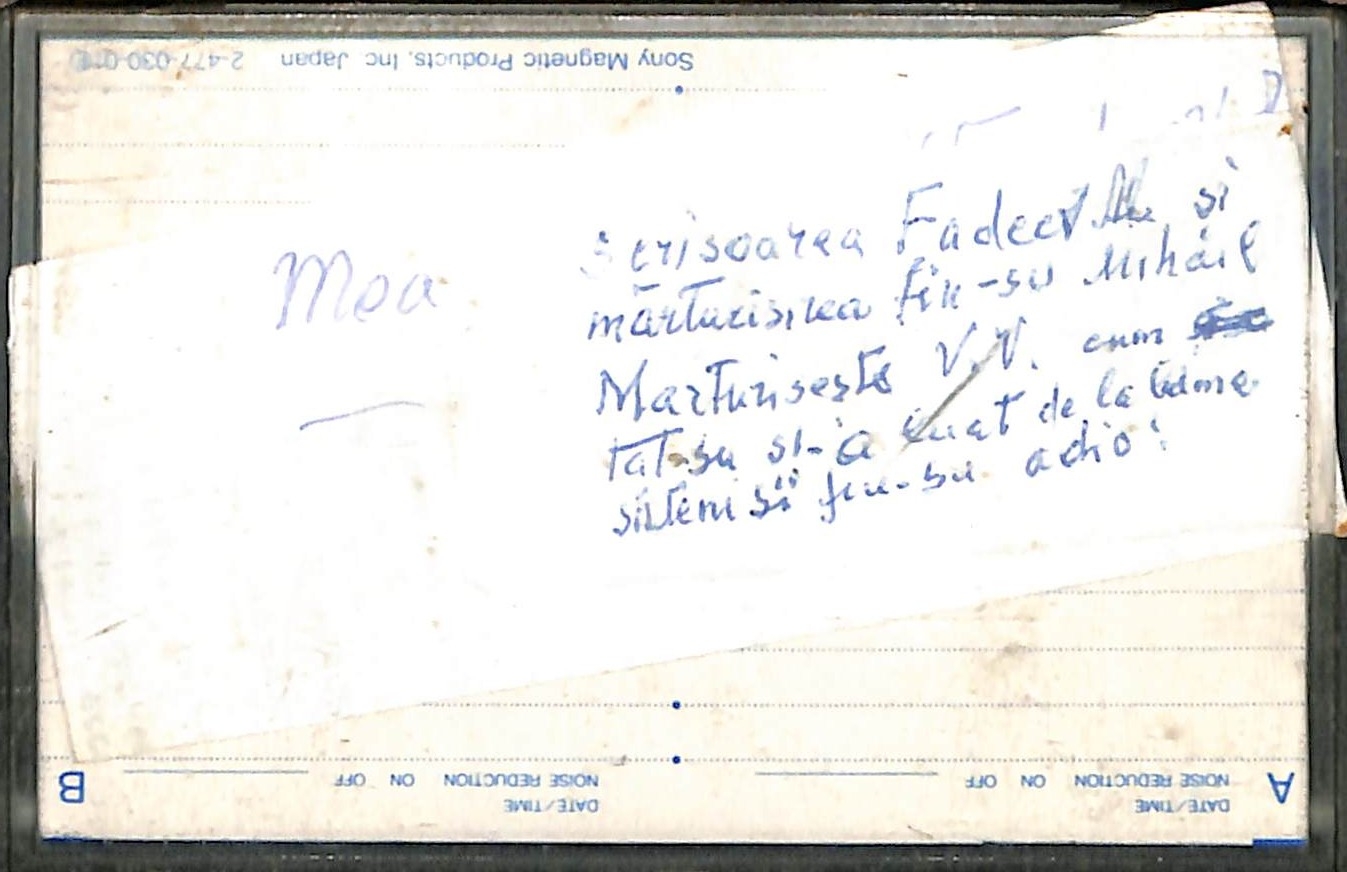 Sony Magnetic Products, Inc. Japan 2-477-030-01
Scrisoarea și
mărturisirea fiu-su Mihail
Mea
Marturisește V.V. cum
tat-su și-a luat de la
sistem și fiu-su adio!
B
NOISE REDUCTION ON OFF
DATE/TIME
A
NOISE REDUCTION ON OFF
DATE/TIME